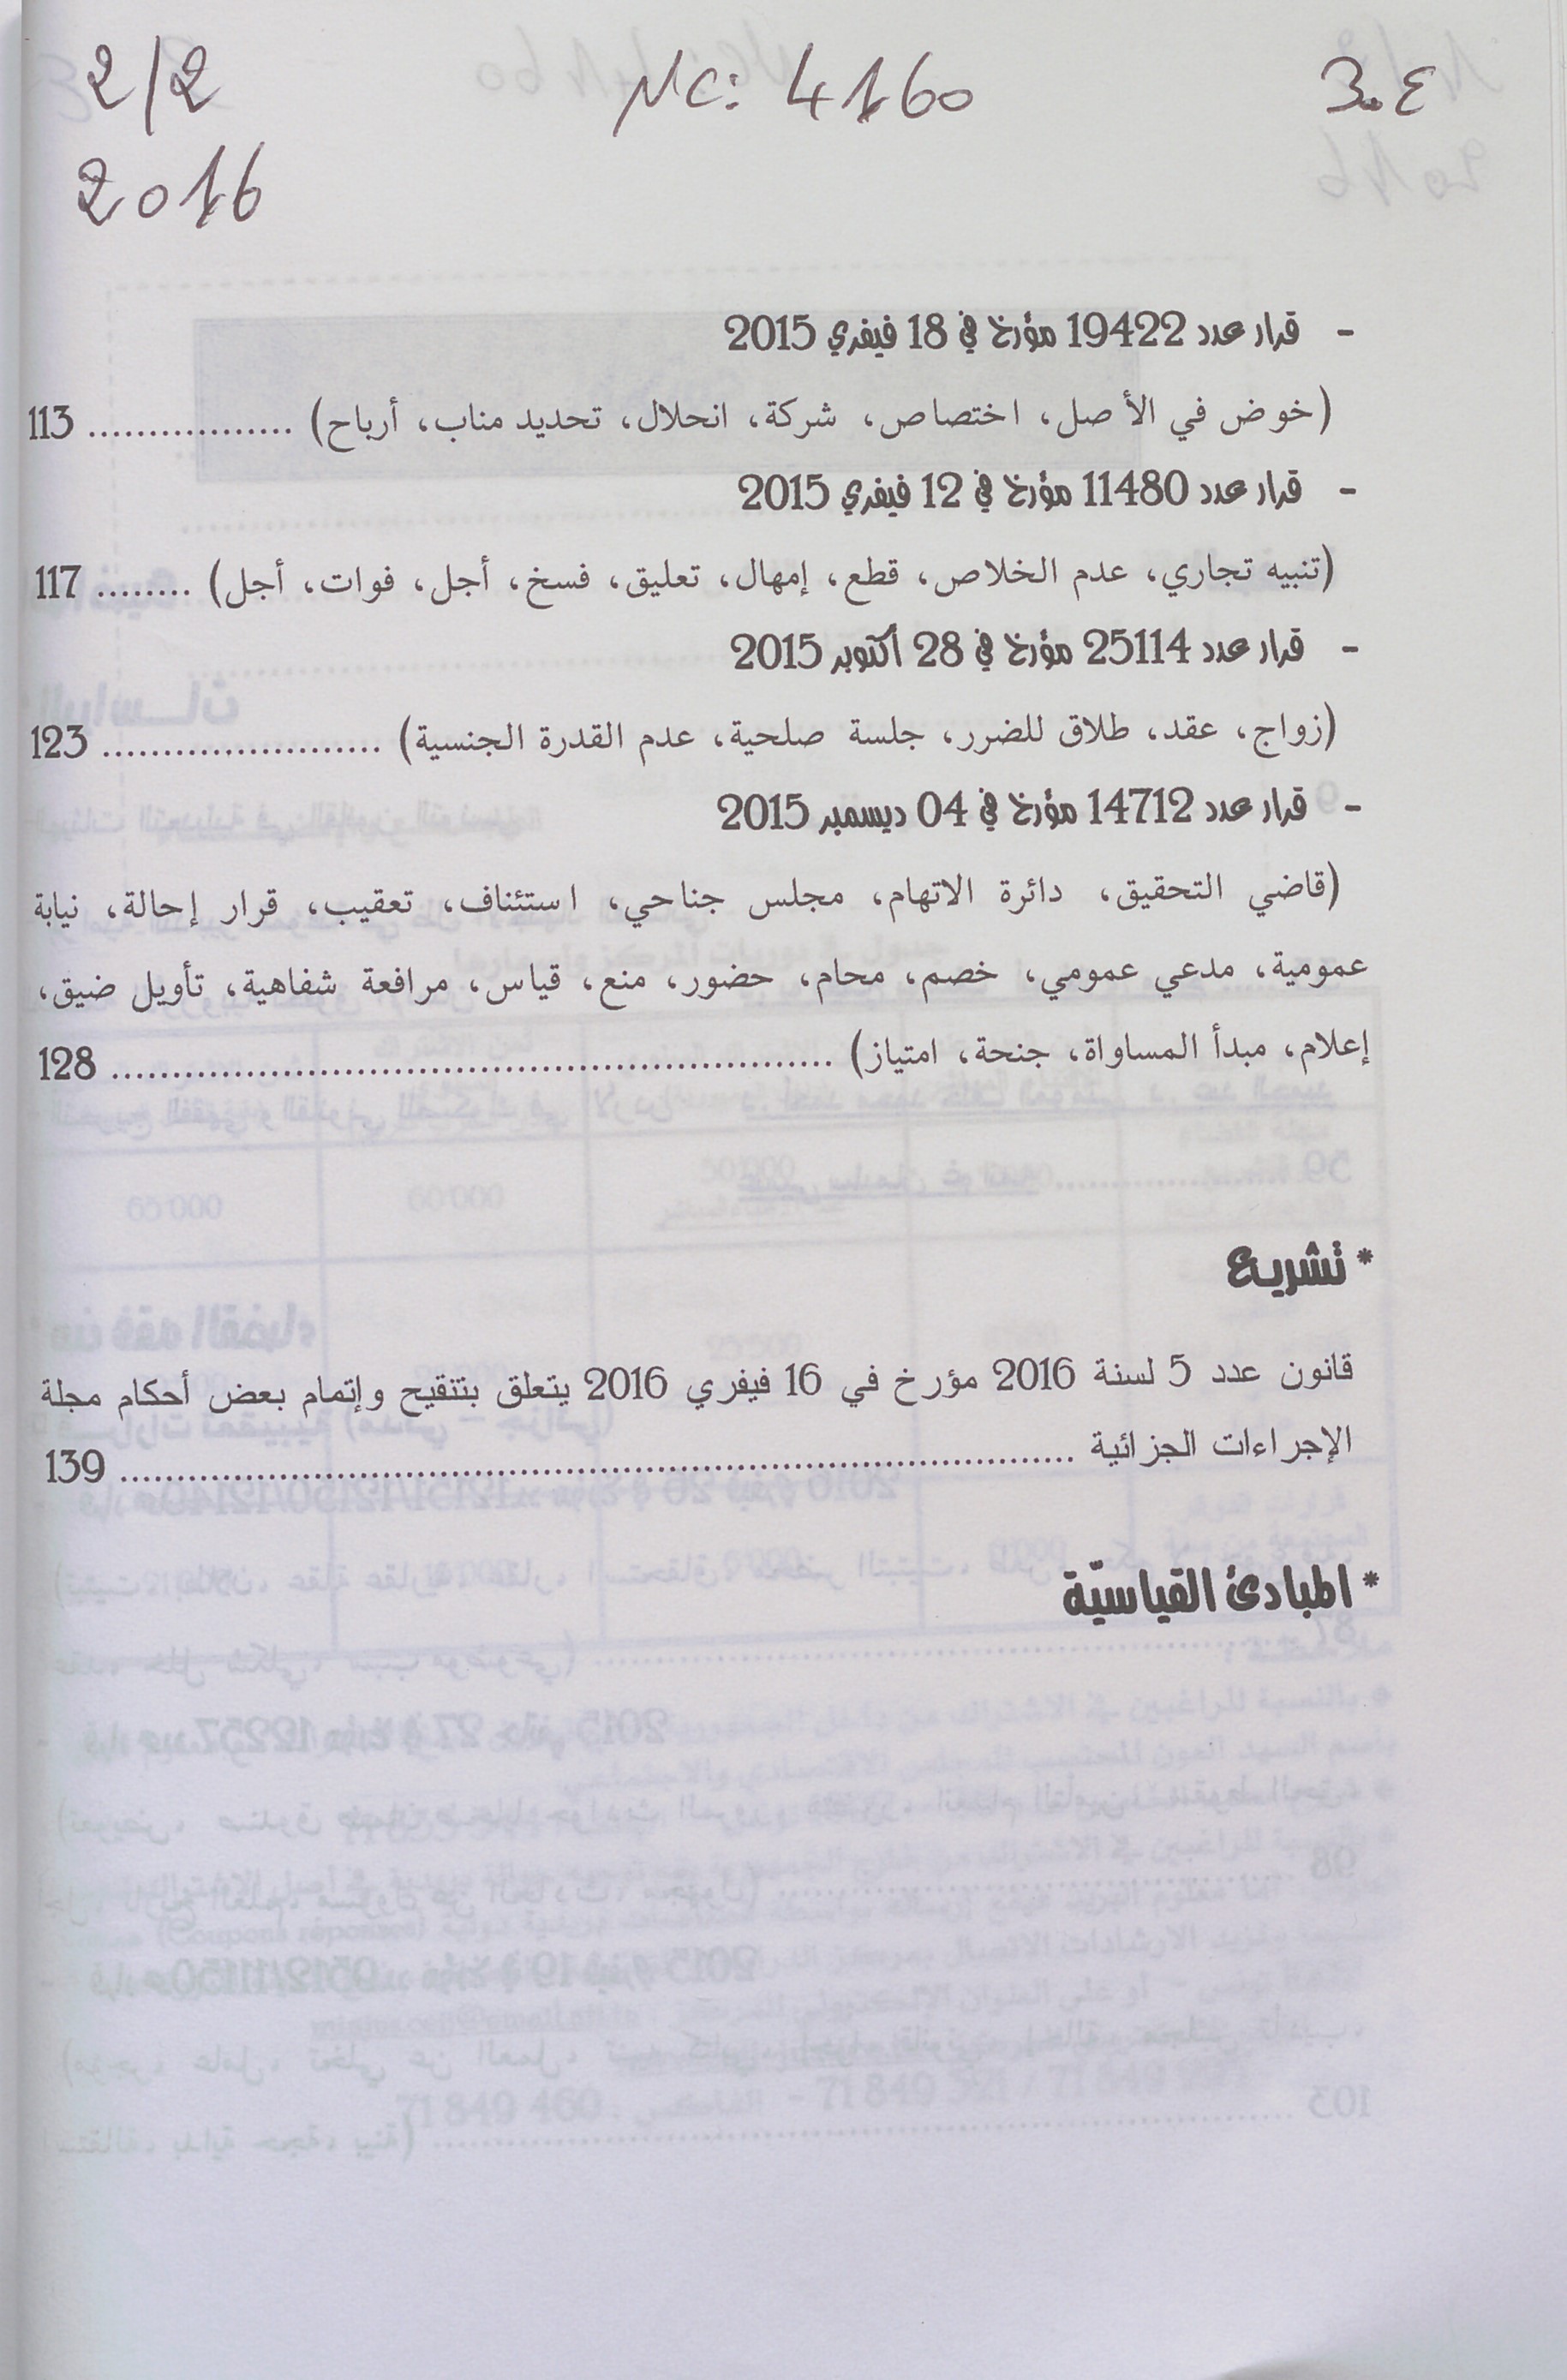 2/2 NC: 4160 3.E
2016
- قرار عدد 19422 مؤرخ في 18 فيفري 2015
(خوض في الأصل، اختصاص، شركة، انحلال، تحديد مناب، أرباح) ................. 113
- قرار عدد 11480 مؤرخ في 12 فيفري 2015
(تنبيه تجاري، عدم الخلاص، قطع، إمهال، تعليق، فسخ، أجل، فوات، أجل) ........ 117
- قرار عدد 25114 مؤرخ في 28 أكتوبر 2015
(زواج، عقد، طلاق للضرر، جلسة صلحية، عدم القدرة الجنسية) ....................... 123
- قرار عدد 14712 مؤرخ في 04 ديسمبر 2015
(قاضي التحقيق، دائرة الاتهام، مجلس جناحي، استئناف، تعقيب، قرار إحالة، نيابة
عمومية، مدعي عمومي، خصم، محام، حضور، منع، قياس، مرافعة شفاهية، تأويل ضيق،
إعلام، مبدأ المساواة، جنحة، امتياز) ............................................................ 128
* تشريع
قانون عدد 5 لسنة 2016 مؤرخ في 16 فيفري 2016 يتعلق بتنقيح وإتمام بعض أحكام مجلة
الإجراءات الجزائية ................................................................................ 139
* المبادئ القياسيّة